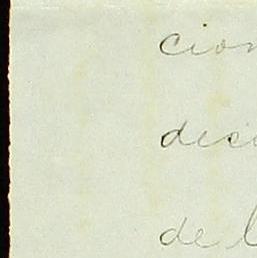 cion
deci
de l